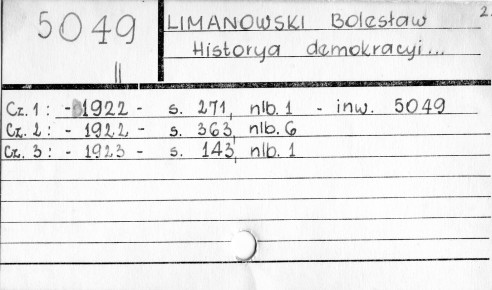 5049
II
LIMANOWSKI Bolesław 2.
Historya demokracyi...
Cz. 1: - 1922 - s. 271, nlb. 1 - inw. 5049
Cz. 2: - 1922 - s. 363, nlb. 6
Cz. 3: - 1923 - s. 143, nlb. 1